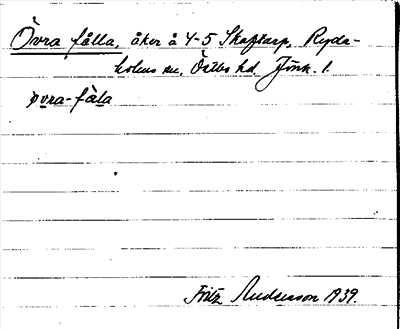 Övra fålla, åker å 4-5 Skaftarp, Ryda-
holms sn, Östbo hd Jönk. l.
övra-fàla
Fritz Andersson 1939.